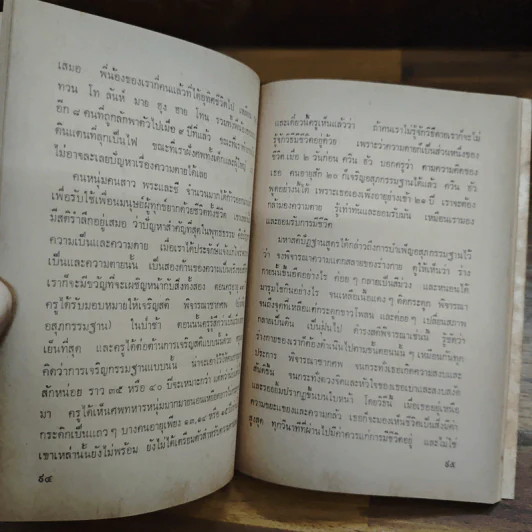 เสมอ พี่น้องของเราก็คนแล้วที่ได้อุทิศชีวิตไป
ทวน โท ลันห์ มาย อุง ชาย โทน รวมทั้ง
อีก ๘ คนที่ถูกลักพาตัวไปเมื่อ ๙ ปีที่แล้ว ขณะที่
ดินแดนที่ลุกเป็นไฟ ขณะที่เราฝังศพทั้งเด็กและผู้ใหญ่
ไม่อาจละเลยปัญหาเรื่องความตายได้เลย
คนหนุ่มคนสาว พระและชี จำนวนมากได้ก้าว
เพื่อรับใช้เพื่อนมนุษย์ผู้ทุกข์ยากด้วยชีวิตทั้งชีวิต
มีสติรำลึกอยู่เสมอ ว่าปัญหาสำคัญที่สุดในพุทธธรรม คือ
ความเป็นและความตาย เมื่อเราได้ประจักษ์แจ้ง
เป็นและความตายนั้น เป็นสองด้านของความเป็นจริง
เราก็จะมีขวัญที่จะเผชิญหน้ากับสิ่งทั้งสอง ตอนครูอายุ
ครูได้รับมอบหมายให้เจริญสติ พิจารณาซากศพ
อสุภกรรมฐาน) ในป่าช้า ตอนนั้นครูรู้สึกว่า
เย็นที่สุด และครูได้ต่อต้านการเจริญสติแบบนั้น
คิดว่าการเจริญกรรมฐานแบบนั้น น่าจะเอาไว้ให้
สักหน่อย ราว ๓๕ หรือ ๔๐ ปีจะเหมาะกว่า แต่
มา ครูได้เห็นศพทหารหนุ่มมากมายนอน
กระดิกเป็นแถว ๆ บางคนอายุเพียง ๑๓, ๑๔ หรือ ๑๕
เขาเหล่านั้นยังไม่พร้อม ยังไม่ได้เตรียมตัวสำหรับความ
๕๔
และเดี๋ยวนี้ครูเห็นแล้วว่า ถ้าคนเราไม่รู้จักวิธีตายเราก็จะไม่
รู้จักวิธีมีชีวิตอยู่ด้วย เพราะว่าความตายก็เป็นส่วนหนึ่งของ
ชีวิต เมื่อ ๒ วันก่อน ควิน ฮัว บอกครูว่า ตามความคิดของ
เธอ คนอายุสัก ๒๐ ก็เจริญอสุภกรรมฐานได้แล้ว ควิน ฮัว
พูดอย่างนั้นได้ เพราะเธอเองเพิ่งอายุย่างเข้า ๒๑ ปี เราจะต้อง
กล้ามองความตาย รู้เท่าทันและยอมรับมัน เหมือนเรามอง
และยอมรับการมีชีวิต
มหาสติปัฏฐานสูตรได้กล่าวถึงการบำเพ็ญอสุภกรรมฐานไว้
ว่า จงพิจารณาความแตกสลายของร่างกาย ดูให้เห็นว่า ร่าง
กายนั้นเริ่มอืดอย่างไร ค่อย ๆ กลายเป็นสีม่วง และหนอนได้
มารุมไชกินอย่างไร จนเหลือเนื้อแดง ๆ ติดกระดูก พิจารณา
จนถึงจุดที่เหลือแต่กระดูกขาวโพลน และค่อย ๆ เปลี่ยนสภาพ
กลายเป็นดิน เป็นฝุ่นไป ดำรงสติพิจารณาเช่นนั้น รู้ชัดว่า
ร่างกายของเราก็ต้องดำเนินไปตามขั้นตอนนั้น ๆ เหมือนกันทุก
ประการ พิจารณาซากศพ จนกระทั่งเธอเกิดความสงบและ
สันติขึ้น จนกระทั่งดวงจิตและหัวใจของเธอเบาและสงบลง
และรอยยิ้มปรากฏขึ้นบนใบหน้า โดยวิธีนั้น เมื่อเธออยู่เหนือ
ความขยะแขยงและความกลัว เธอก็จะมองเห็นชีวิตเป็นสิ่งมีค่า
สูงสุด ทุกวินาทีที่ผ่านไปมีค่าควรแก่การมีชีวิตอยู่ และไม่ใช่
๕๕